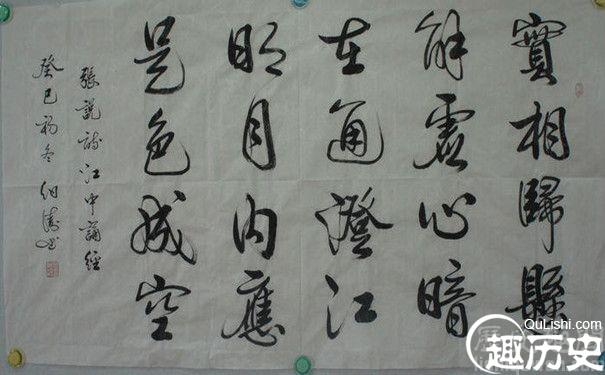 實相歸縣
解虛心暗
在通澄江
明月内應
是色成空
張說詩江中誦經
癸巳初冬
QuLishi.com
趣历史